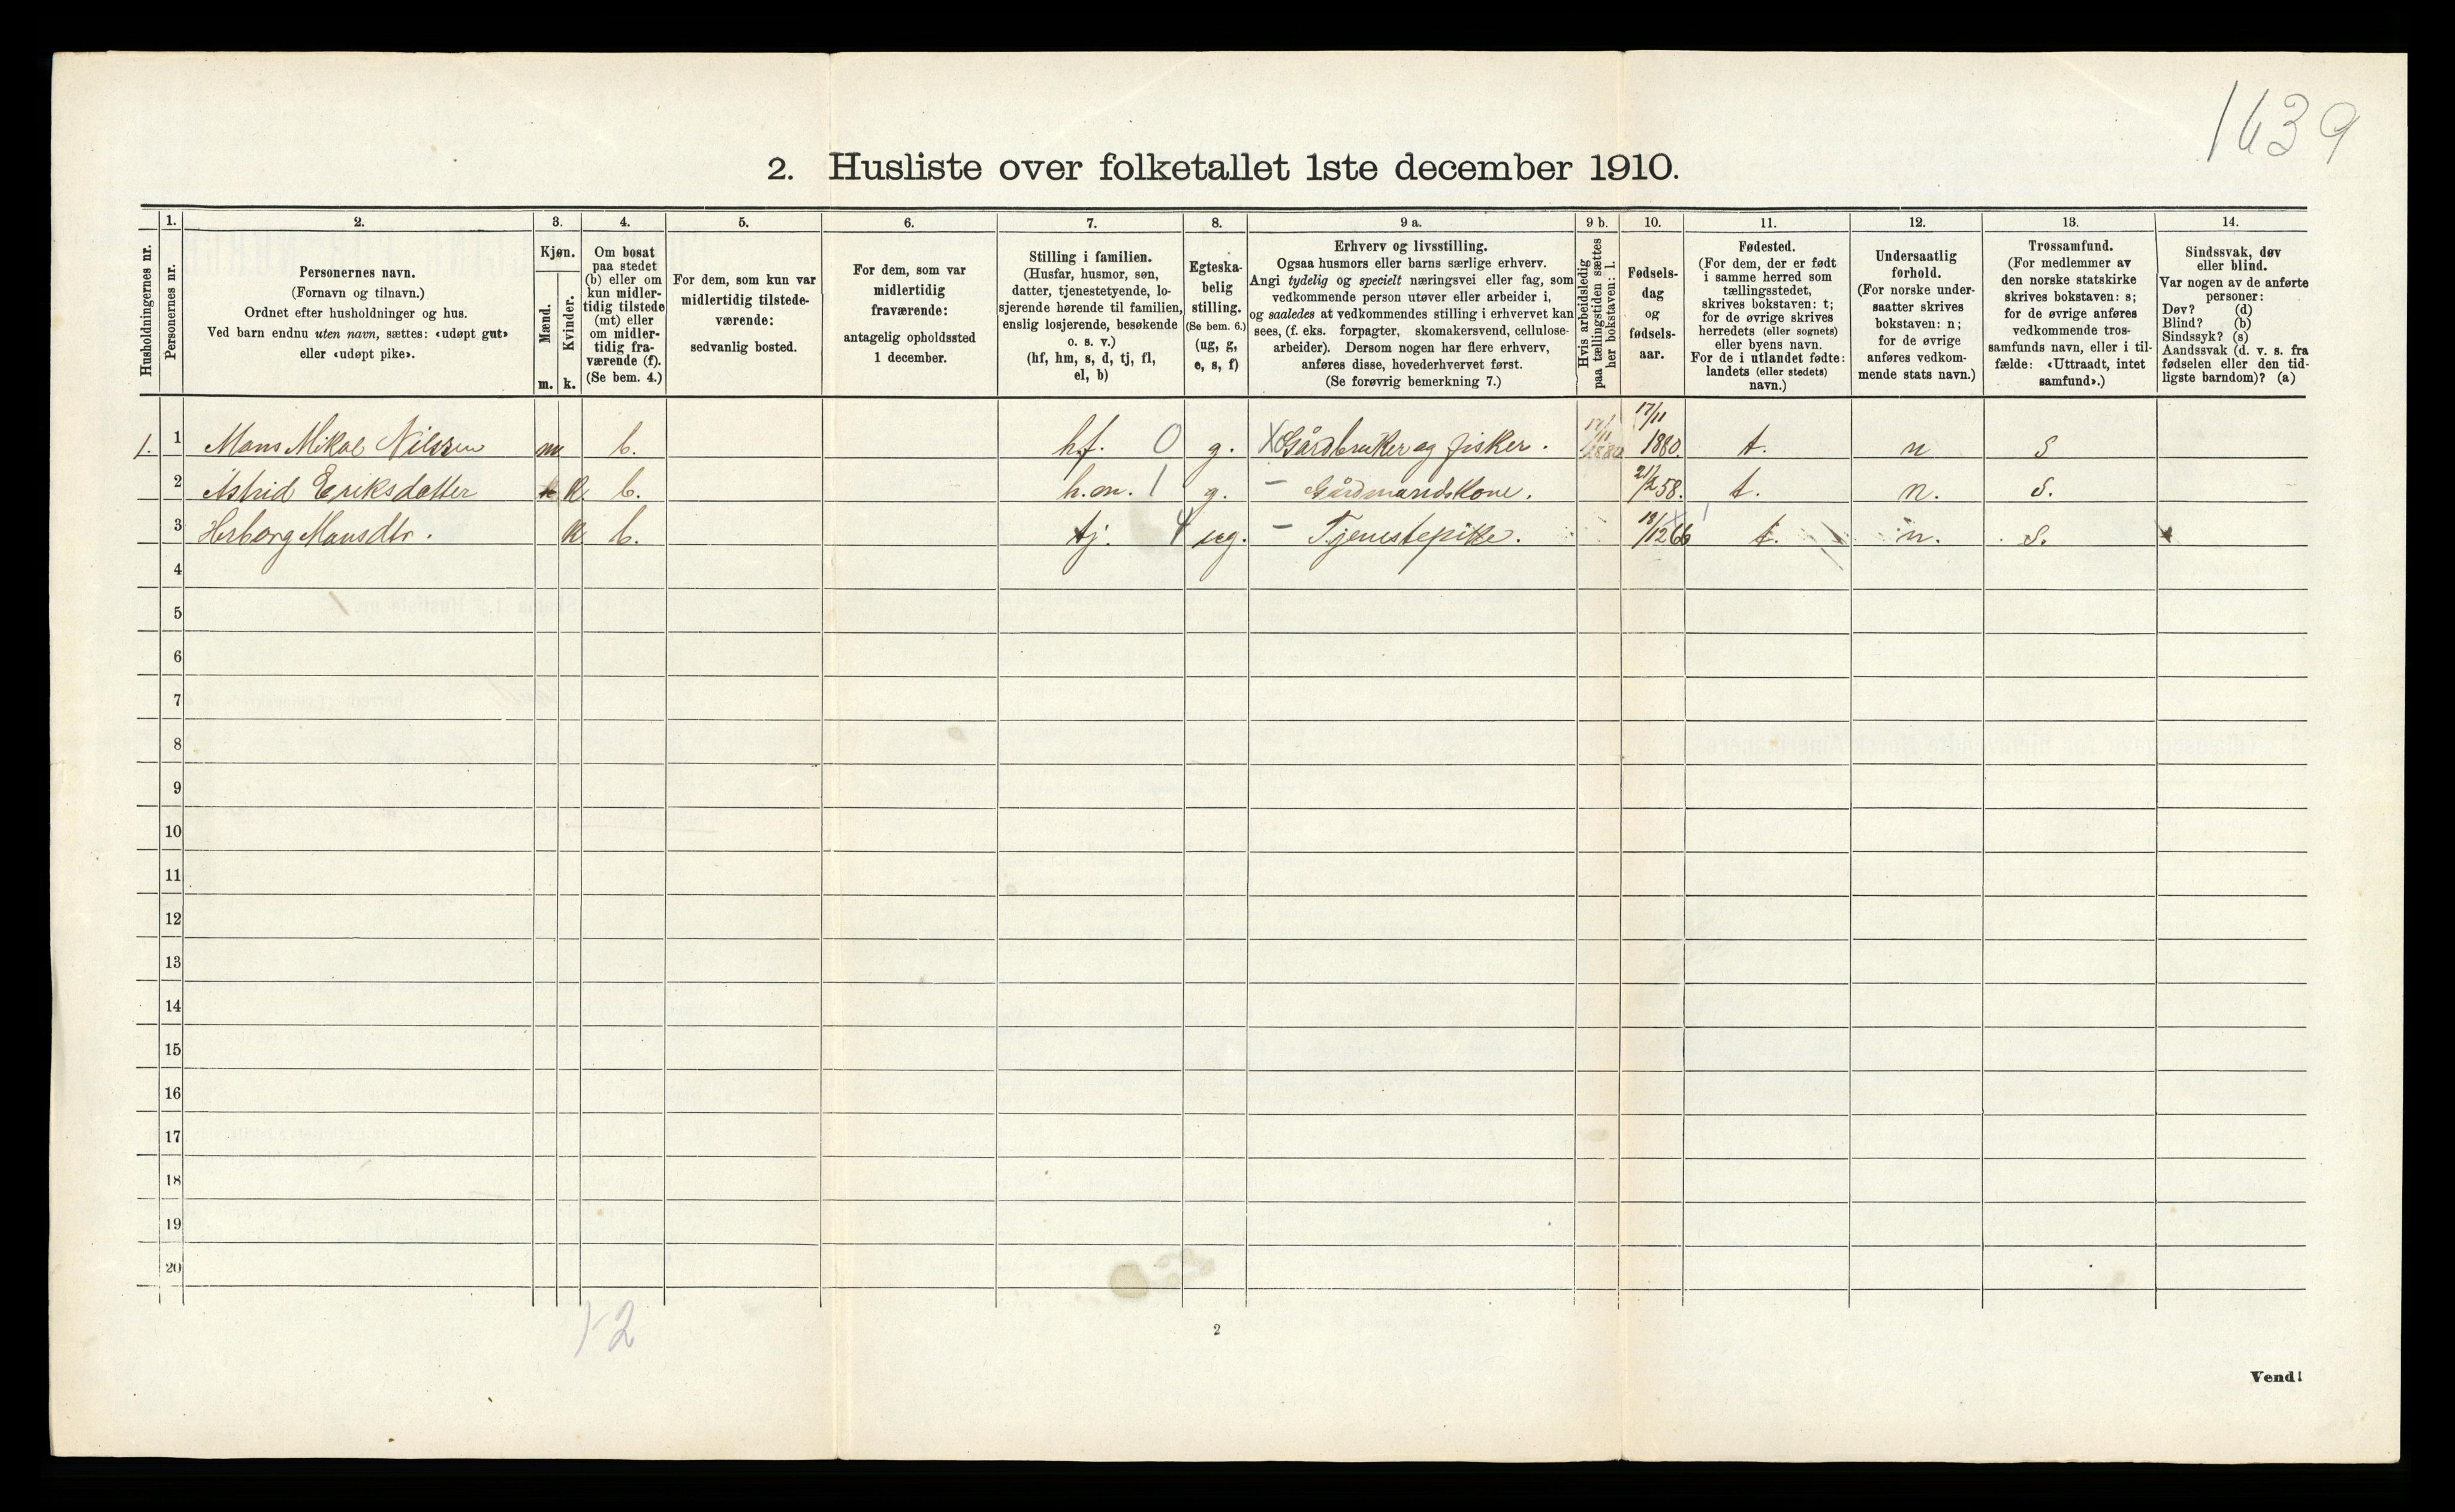 1639
2. Husliste over folketallet 1ste december 1910.
Husholdningernes nr.
1.
Personernes nr.
2.
Personernes navn.
(Fornavn og tilnavn.)
Ordnet efter husholdninger og hus.
Ved barn endnu uten navn, sættes: «udøpt gut»
eller «udøpt pike».
3.
Kjøn.
Mænd.
Kvinder.
m. k.
4.
Om bosat
paa stedet
(b) eller om
kun midler-
tidig tilstede
(mt) eller
om midler-
tidig fra-
værende (f).
(Se bem. 4.)
5.
For dem, som kun var
midlertidig tilstede-
værende:
sedvanlig bosted.
6.
For dem, som var
midlertidig
fraværende:
antagelig opholdssted
1 december.
7.
Stilling i familien.
(Husfar, husmor, søn,
datter, tjenestetyende, lo-
sjerende hørende til familien,
enslig losjerende, besøkende
o. s. v.)
(hf, hm, s, d, tj, fl,
el, b)
8.
Egteska-
belig
stilling.
(Se bem. 6.)
(ug, g,
e, s, f)
9 a.
Erhverv og livsstilling.
Ogsaa husmors eller barns særlige erhverv.
Angi tydelig og specielt næringsvei eller fag, som
vedkommende person utøver eller arbeider i,
og saaledes at vedkommendes stilling i erhvervet kan
sees, (f. eks. forpagter, skomakersvend, cellulose-
arbeider). Dersom nogen har flere erhverv,
anføres disse, hovederhvervet først.
(Se forøvrig bemerkning 7.)
9 b.
Hvis arbeidsledig
paa tællingstiden sættes
her bokstaven: l.
10.
Fødsels-
dag
og
fødsels-
aar.
11.
Fødested.
(For dem, der er født
i samme herred som
tællingsstedet,
skrives bokstaven: t;
for de øvrige skrives
herredets (eller sognets)
eller byens navn.
For de i utlandet fødte:
landets (eller stedets)
navn.)
12.
Undersaatlig
forhold.
(For norske under-
saatter skrives
bokstaven: n;
for de øvrige
anføres vedkom-
mende stats navn.)
13.
Trossamfund.
(For medlemmer av
den norske statskirke
skrives bokstaven: s;
for de øvrige anføres
vedkommende tros-
samfunds navn, eller i til-
fælde: «Uttraadt, intet
samfund».)
14.
Sindssvak, døv
eller blind.
Var nogen av de anførte
personer:
Døv? (d)
Blind? (b)
Sindssyk? (s)
Aandssvak (d. v. s. fra
fødselen eller den tid-
ligste barndom)? (a)
1. 1 Mons Mikal Nilssen m b. hf. 0 g. X Gårdbruker og fisker. 17/11 1880 17/11 1880. t. n s
2 Astrid Eriksdatter k b. h.m. 1 g. - Gårdmandskone. 21/2 58. t. n. s.
3 Herborg Monsdtr. k b. tj. 4 ug. - Tjenestepike. 18/12 66 t. n. s.
4
5
6
7
8
9
10
11
12
13
14
15
16
17
18
19
20
1-2
2
Vend!